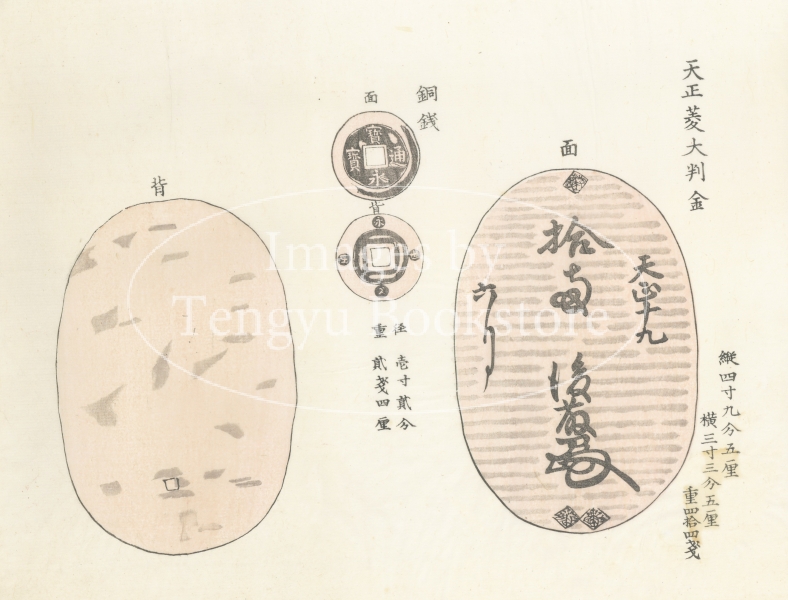 天正菱大判金
面
天正十九
拾両 後藤
六月
縦四寸九分五厘
横三寸三分五厘
重四拾四戔
銅銭
面
寳永通寳
背
永
径壱寸貳分
重貳戔四厘
背
Images by
Tengyu Bookstore